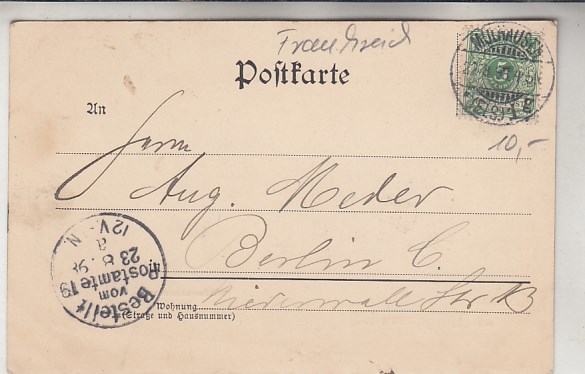 Frankreich
Postkarte
MÜLHAUSEN
5
(ELS) 1 g
10,-
An
Herrn
Aug. Meder
Berlin C.
Niederwall Str 13
Wohnung
(Straße und Hausnummer)
Bestellt
vom
Postamte 19
23 8. 98
12 V. - N.